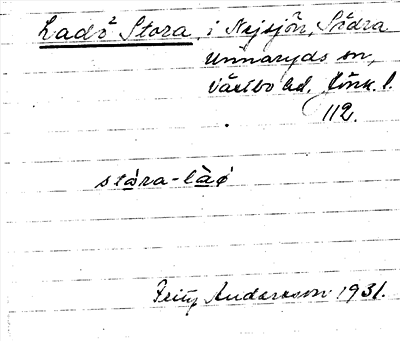 Ladö Stora, i Nejsjön, Södra
Unnaryds sn,
Västbo hd. Jönk. l.
112.
stóra-làø
Fritz Andersson 1931.